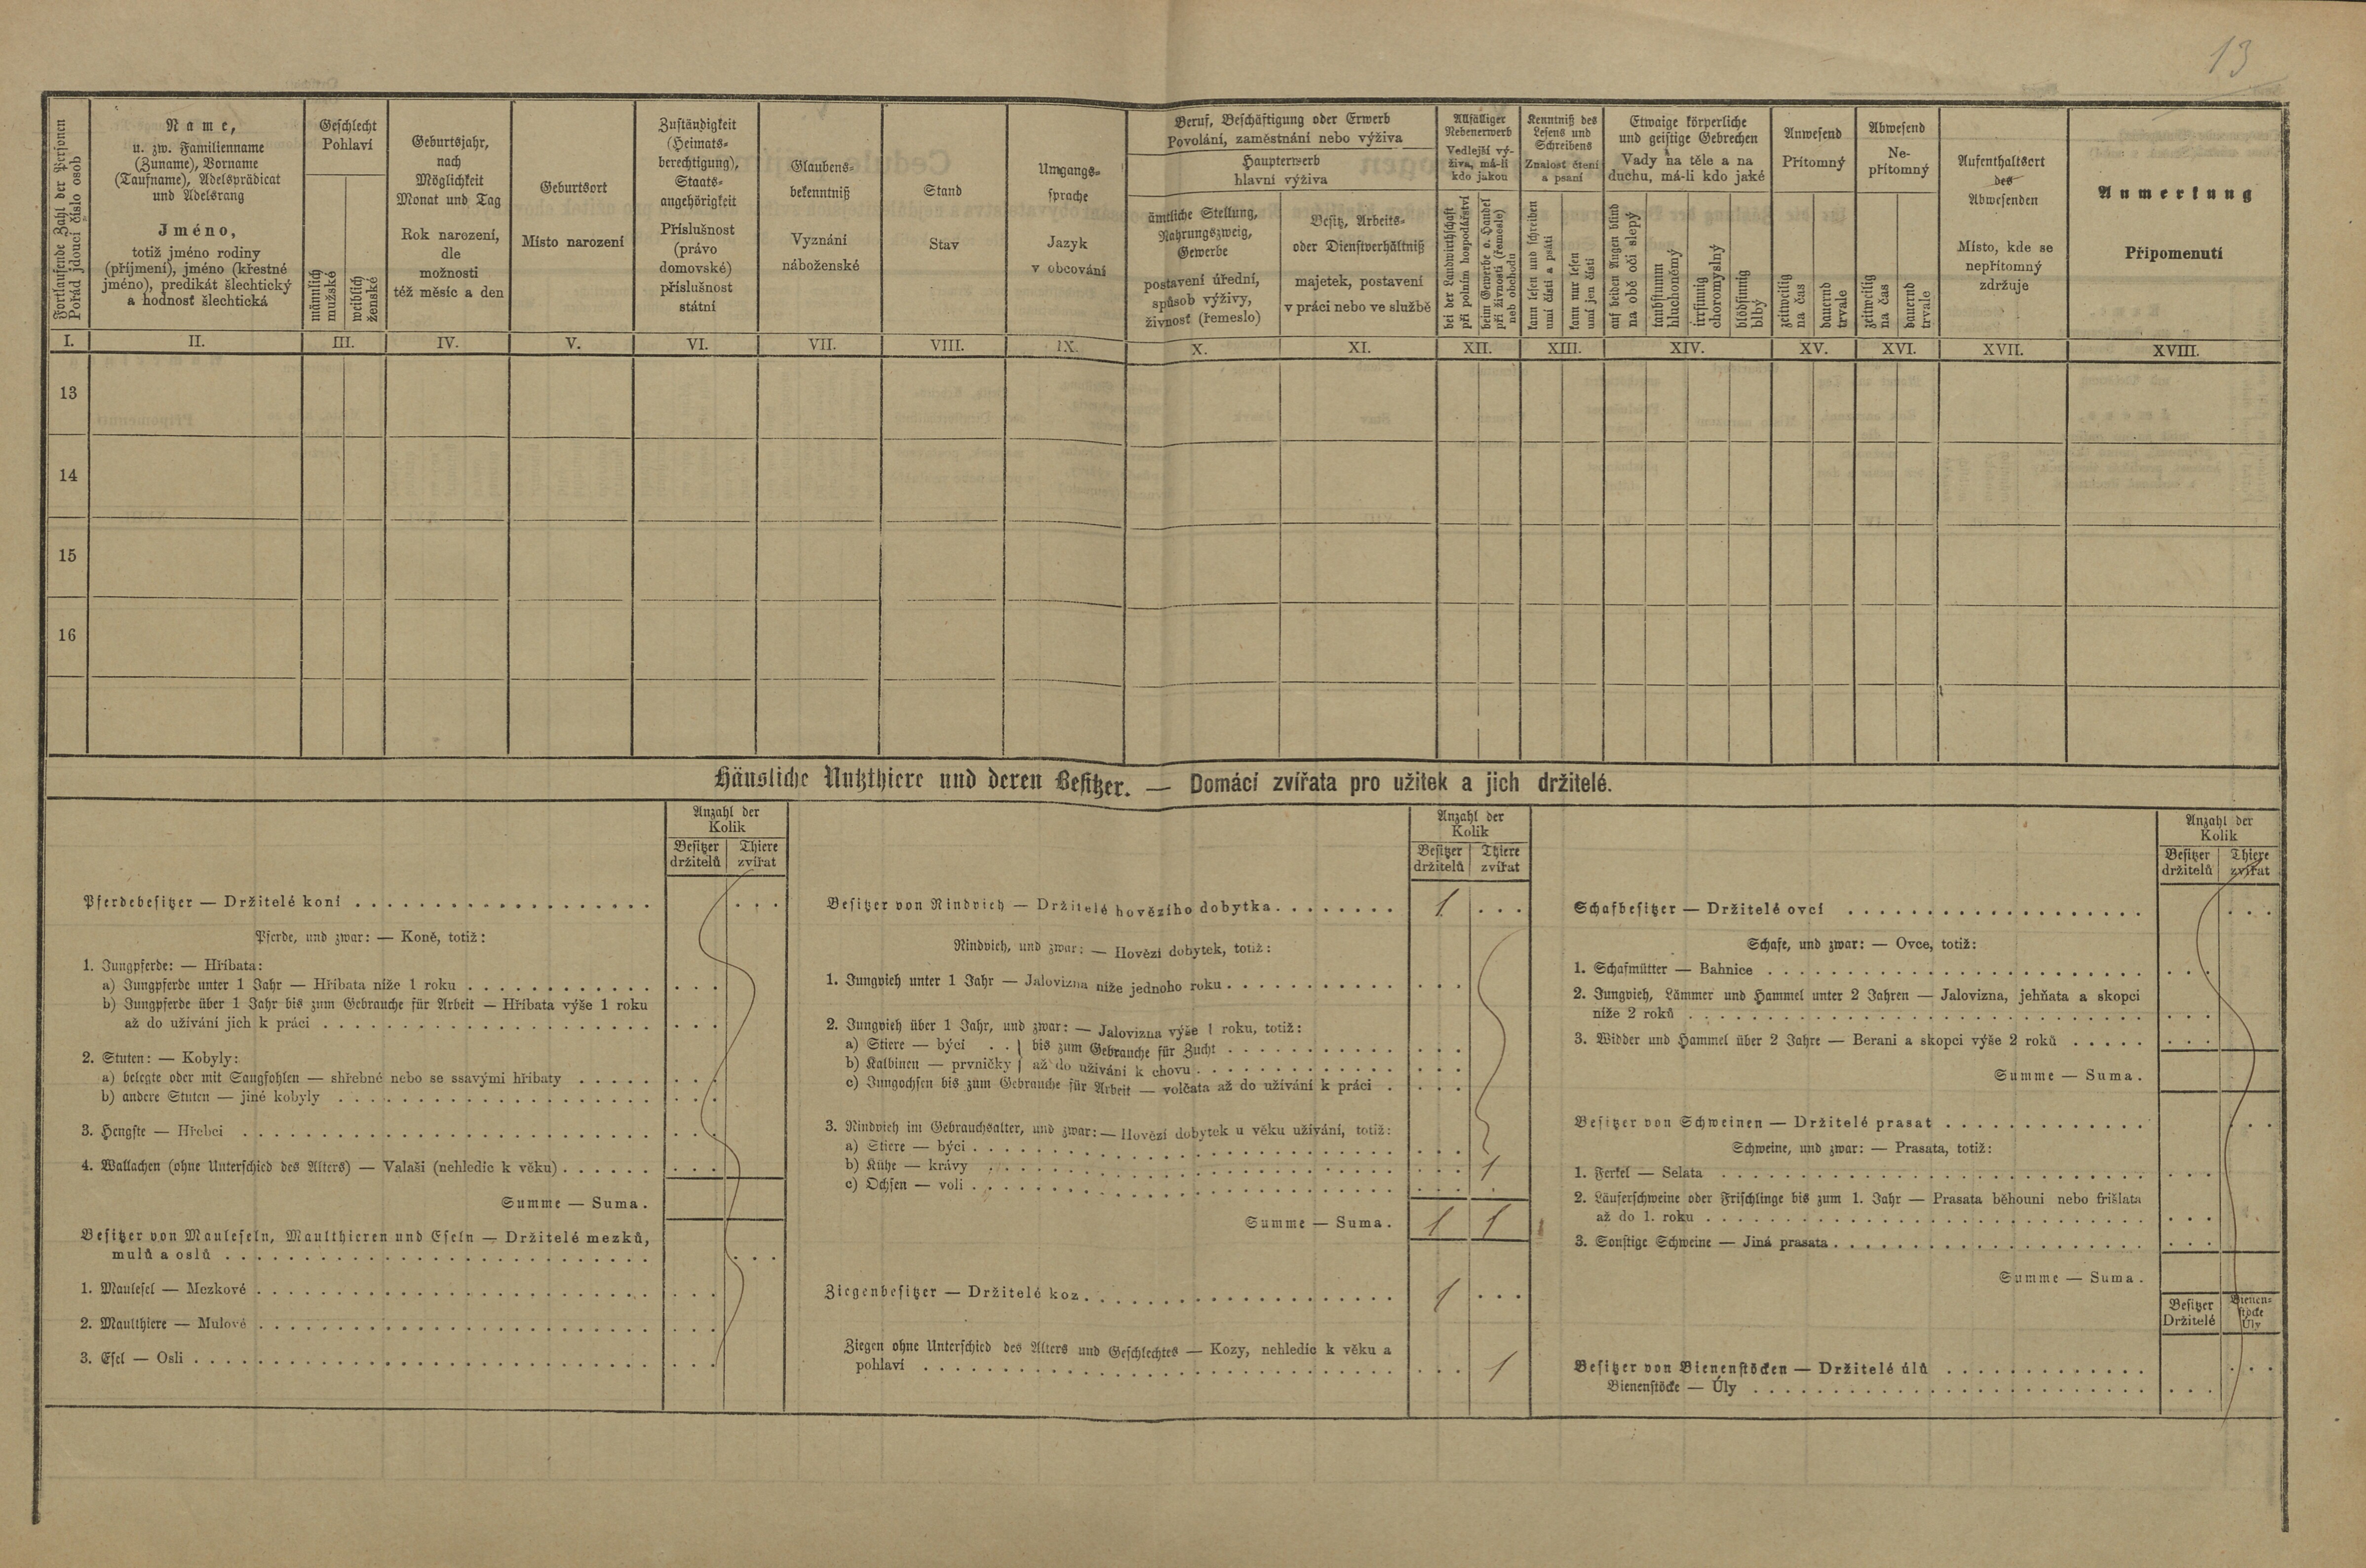 13
Fortlaufende Zahl der Personen
Pořád jdoucí číslo osob
Name,
u. zw. Familienname
(Zuname), Vorname
(Taufname), Adelsprädicat
und Adelsrang
Jméno,
totiž jméno rodiny
(příjmení), jméno (křestné
jméno), predikát šlechtický
a hodnost šlechtická
Geschlecht
Pohlaví
männlich
mužské
weiblich
ženské
Geburtsjahr,
nach
Möglichkeit
Monat und Tag
Rok narození,
dle
možnosti
též měsíc a den
Geburtsort
Místo narození
Zuständigkeit
(Heimats-
berechtigung),
Staats-
angehörigkeit
Příslušnost
(právo
domovské)
příslušnost
státní
Glaubens-
bekenntniß
Vyznání
náboženské
Stand
Stav
Umgangs-
sprache
Jazyk
v obcování
Beruf, Beschäftigung oder Erwerb
Povolání, zaměstnání nebo výživa
Haupterwerb
hlavní výživa
ämtliche Stellung,
Nahrungszweig,
Gewerbe
postavení úřední,
spůsob výživy,
živnost (řemeslo)
Besitz, Arbeits-
oder Dienstverhältniß
majetek, postavení
v práci nebo ve službě
Allfälliger
Nebenerwerb
Vedlejší vý-
živa, má-li
kdo jakou
bei der Landwirthschaft
při polním hospodářství
beim Gewerbe o. Handel
při živnosti (řemesle)
neb obchodu
Kenntniß des
Lesens und
Schreibens
Znalost čtení
a psaní
kann lesen und schreiben
umí čísti a psáti
kann nur lesen
umí jen čísti
Etwaige körperliche
und geistige Gebrechen
Vady na těle a na
duchu, má-li kdo jaké
auf beiden Augen blind
na obě oči slepý
taubstumm
hluchoněmý
irrsinnig
choromyslný
blödsinnig
blbý
Anwesend
Přítomný
zeitweilig
na čas
dauernd
trvale
Abwesend
Ne-
přítomný
zeitweilig
na čas
dauernd
trvale
Aufenthaltsort
des
Abwesenden
Místo, kde se
nepřítomný
zdržuje
Anmerkung
Připomenutí
I. II. III. IV. V. VI. VII. VIII. IX. X. XI. XII. XIII. XIV. XV. XVI. XVII. XVIII.
13
14
15
16
Häusliche Nutzthiere und deren Besitzer. — Domácí zvířata pro užitek a jich držitelé.
Anzahl der
Kolik
Besitzer
držitelů
Thiere
zvířat
Pferdebesitzer — Držitelé koní
Pferde, und zwar: — Koně, totiž:
1. Jungpferde: — Hříbata:
a) Jungpferde unter 1 Jahr — Hříbata níže 1 roku
b) Jungpferde über 1 Jahr bis zum Gebrauche für Arbeit — Hříbata výše 1 roku
až do užívání jich k práci
2. Stuten: — Kobyly:
a) belegte oder mit Saugfohlen — shřebné nebo se ssavými hříbaty
b) andere Stuten — jiné kobyly
3. Hengste — Hřebci
4. Wallachen (ohne Unterschied des Alters) — Valaši (nehledíc k věku)
Summe — Suma.
Besitzer von Mauleseln, Maulthieren und Eseln — Držitelé mezků,
mulů a oslů
1. Maulesel — Mezkové
2. Maulthiere — Mulové
3. Esel — Osli
Anzahl der
Kolik
Besitzer
držitelů
Thiere
zvířat
Besitzer von Rindvieh — Držitelé hovězího dobytka 1
Rindvieh, und zwar: — Hovězí dobytek, totiž:
1. Jungvieh unter 1 Jahr — Jalovizna níže jednoho roku
2. Jungvieh über 1 Jahr, und zwar: — Jalovizna výše 1 roku, totiž:
a) Stiere — býci . . } bis zum Gebrauche für Zucht
b) Kalbinen — prvničky } až do užívání k chovu
c) Jungochsen bis zum Gebrauche für Arbeit — volčata až do užívání k práci
3. Rindvieh im Gebrauchsalter, und zwar: — Hovězí dobytek u věku užívání, totiž:
a) Stiere — býci
b) Kühe — krávy 1
c) Ochsen — voli
Summe — Suma. 1 1
Ziegenbesitzer — Držitelé koz 1
Ziegen ohne Unterschied des Alters und Geschlechtes — Kozy, nehledíc k věku a
pohlaví 1
Anzahl der
Kolik
Besitzer
držitelů
Thiere
zvířat
Schafbesitzer — Držitelé ovcí
Schafe, und zwar: — Ovce, totiž:
1. Schafmütter — Bahnice
2. Jungvieh, Lämmer und Hammel unter 2 Jahren — Jalovizna, jehňata a skopci
níže 2 roků
3. Widder und Hammel über 2 Jahre — Berani a skopci výše 2 roků
Summe — Suma.
Besitzer von Schweinen — Držitelé prasat
Schweine, und zwar: — Prasata, totiž:
1. Ferkel — Selata
2. Läuferschweine oder Frischlinge bis zum 1. Jahr — Prasata běhouni nebo frišlata
až do 1. roku
3. Sonstige Schweine — Jiná prasata
Summe — Suma.
Besitzer
Držitelé
Bienen-
stöcke
Úly
Besitzer von Bienenstöcken — Držitelé úlů
Bienenstöcke — Úly